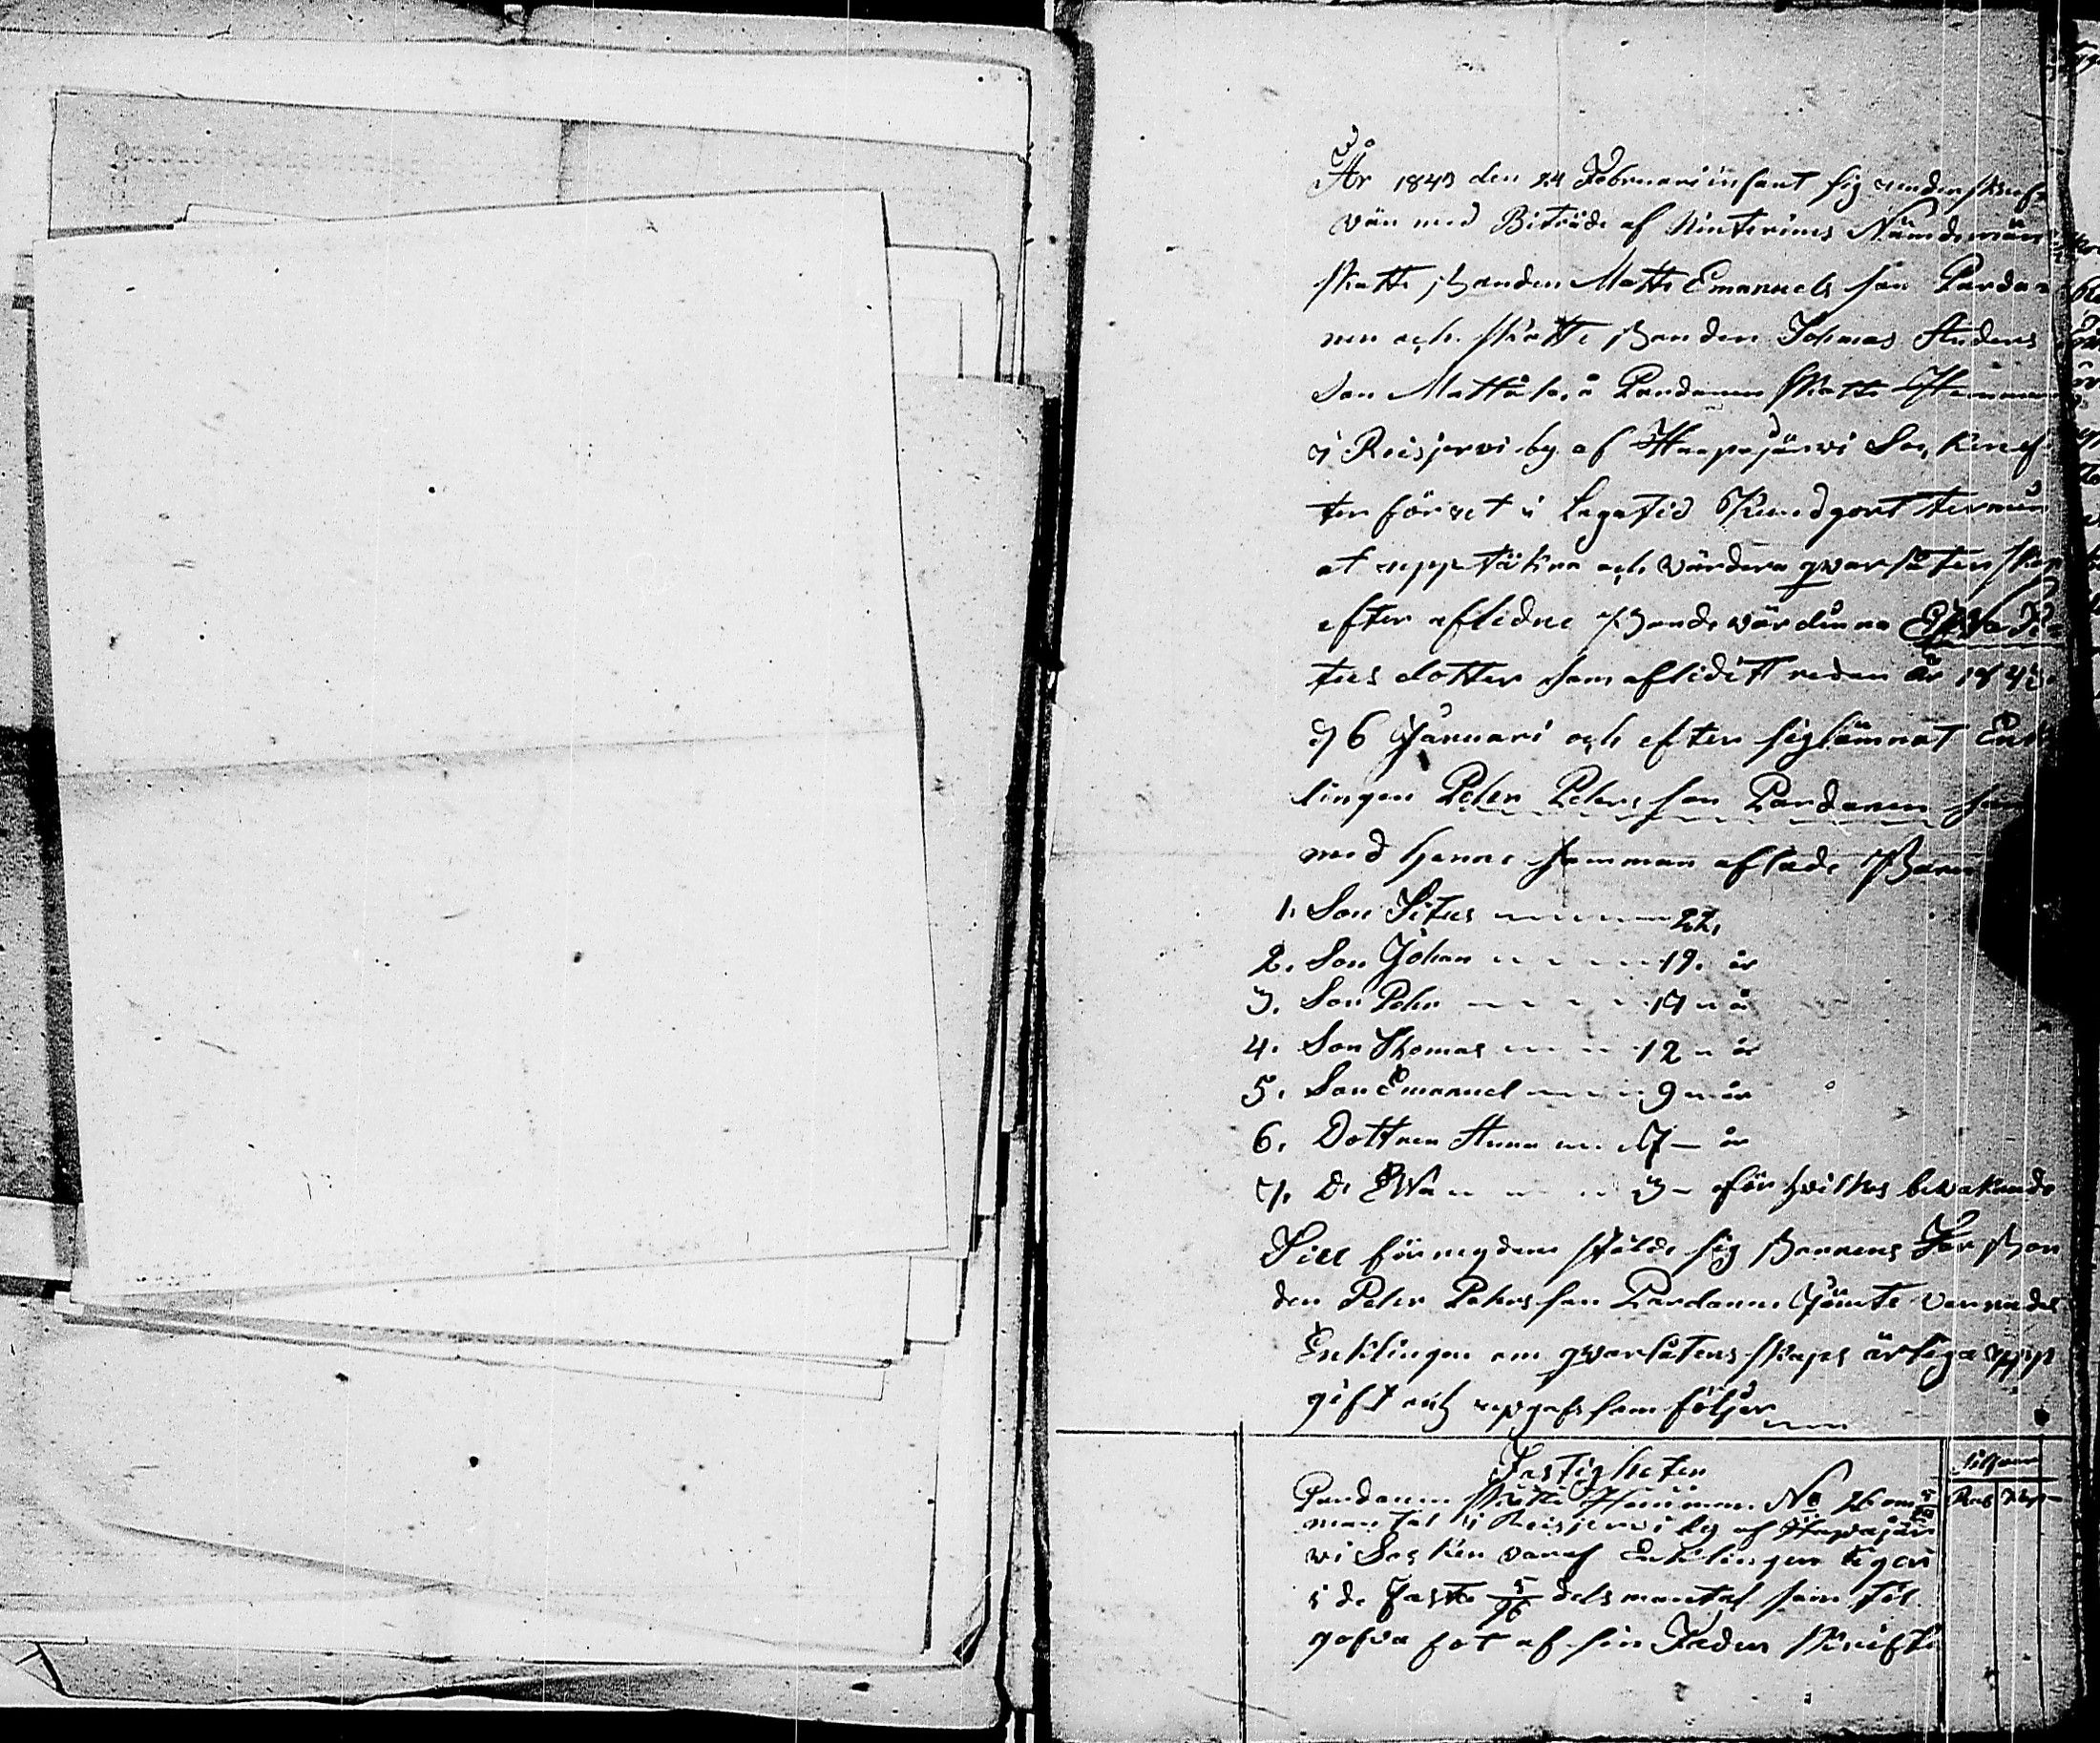 År 1843 den 24 Februari infant sig underskref
vän med Biträde af Nämdemän
skatte Bonden Matts Emanuels son Parda
nen och skatte Bonden Johanas Anders
son Mattila, å Pardanen skatte Hemman
i Reisjervi by af Haapajärvi Socken ef
ter förut i Lagatid Kundgort termin
at upptäkna och värdera qvarlåtenskap
efter aflidne Bonde värdinna Ewa Ti
tus dotter som aflidit redan år 184
d 6 Januari och efter sig lämnat Enk
lingen Peter Peters son Pardanen som
med henne samman aflade Barn
1. Son Titus 22,
2. Son Johan 19. år
3. Son Peter 17 år
4. Son Thomas 12 år
5. Son Emanuel 9 år
6. Dottren Anna 7 — år
7. D: Ewa 3 — för hvilkas bevakande
Till förmyndare stälde sig Barnens Far Bon
den Peter Peters son Pardanen Jämte varnades
Enklingen om qvarlåtenskaps ärliga upp
gift och uppgafs som följer
Fastigheten
Silfver
Pardanen Skatte Hemman No 26 om
Rub Kop
mantal i Reisjervi by af Haapajär
vi Socken varaf Enklingen äger
i de faste 5/96 dels mantal som til
gofva fot af sin Fader skrifte